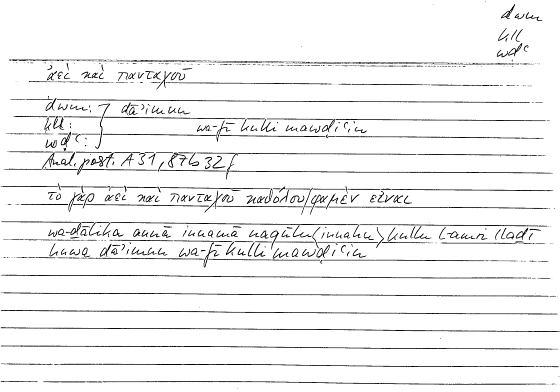 dwm
kll
wḍʿ
ἀεὶ καὶ πανταχοῦ
dwm: } dāʾiman
kll: } wa-fī kulli mawḍiʿin
wḍʿ: }
Anal. post. A 31, 87b32f
τὸ γὰρ ἀεὶ καὶ πανταχοῦ καθόλου φαμὲν εἶναι
wa-ḏālika annā innamā naqūlu (innahu) kullu l-amri llaḏī
huwa dāʾiman wa-fī kulli mawḍiʿin